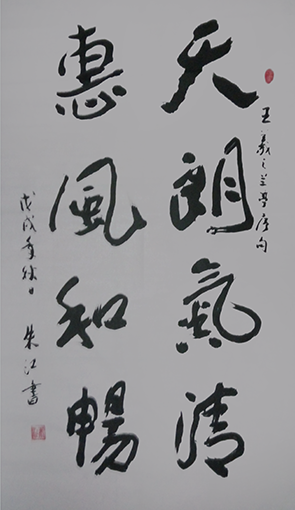 天朗氣清
王羲之兰亭序句
惠風和暢
戊戌年秋日 朱江書